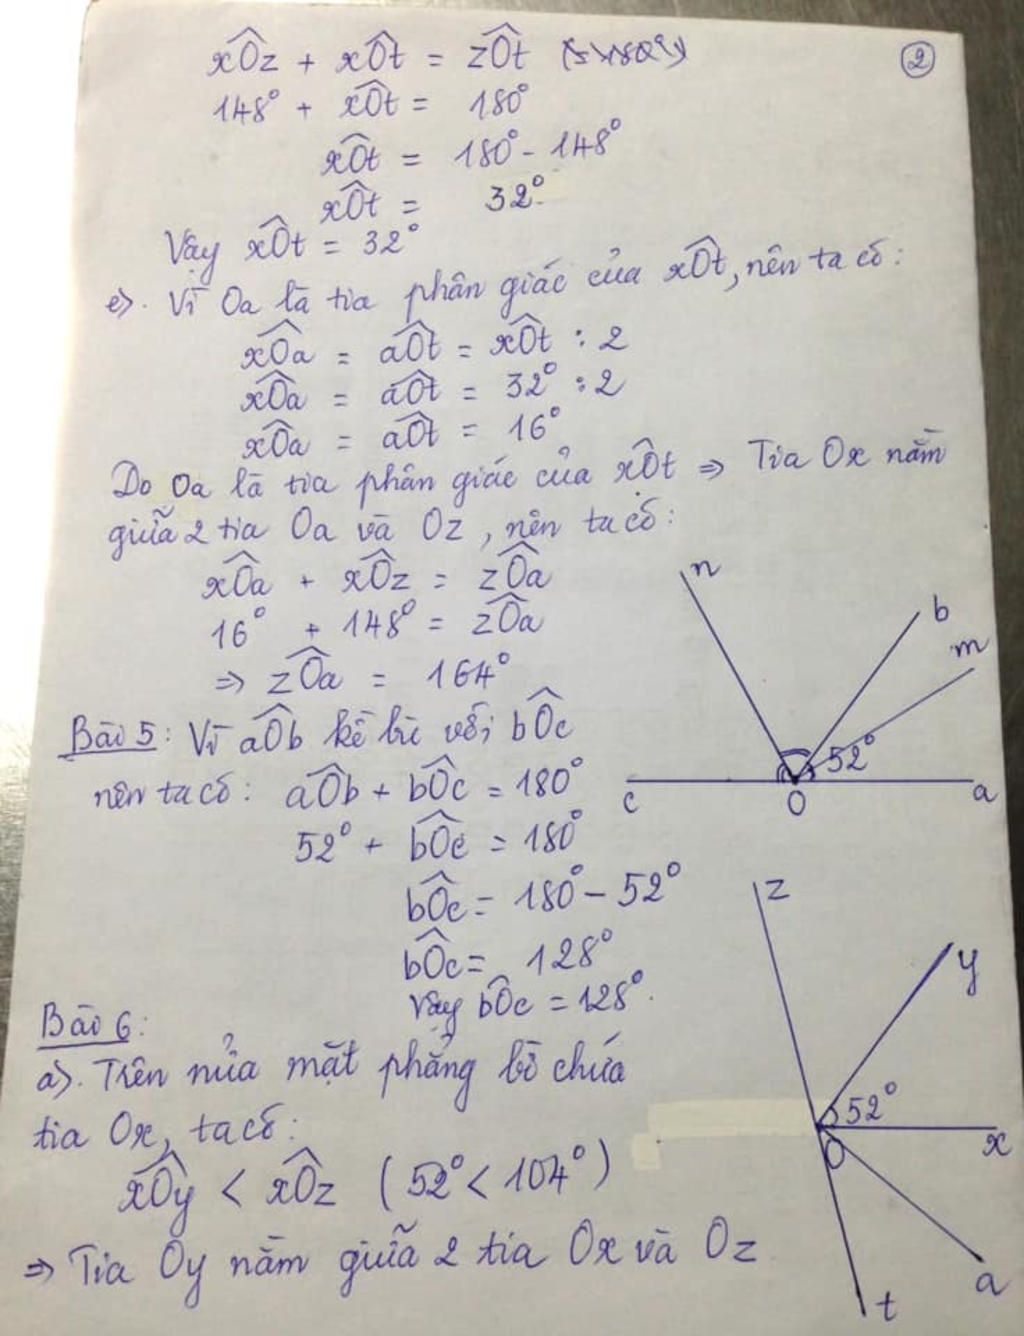 2
xÔz + xÔt = zÔt
148° + xÔt = 180°
xÔt = 180° - 148°
xÔt = 32°
Vậy xÔt = 32°
e). Vì Oa là tia phân giác của xÔt, nên ta có:
xÔa = aÔt = xÔt : 2
xÔa = aÔt = 32° : 2
xÔa = aÔt = 16°
Do Oa là tia phân giác của xÔt => Tia Ox nằm
giữa 2 tia Oa và Oz, nên ta có:
xÔa + xÔz = zÔa
16° + 148° = zÔa
=> zÔa = 164°
n
b
m
52°
c
O
a
Bài 5: Vì aÔb kề bù với bÔc
nên ta có: aÔb + bÔc = 180°
52° + bÔc = 180°
bÔc = 180° - 52°
bÔc = 128°
Vậy bÔc = 128°.
z
y
52°
x
O
a
t
Bài 6:
a). Trên nửa mặt phẳng bờ chứa
tia Ox, ta có:
xÔy < xÔz (52° < 104°)
=> Tia Oy nằm giữa 2 tia Ox và Oz